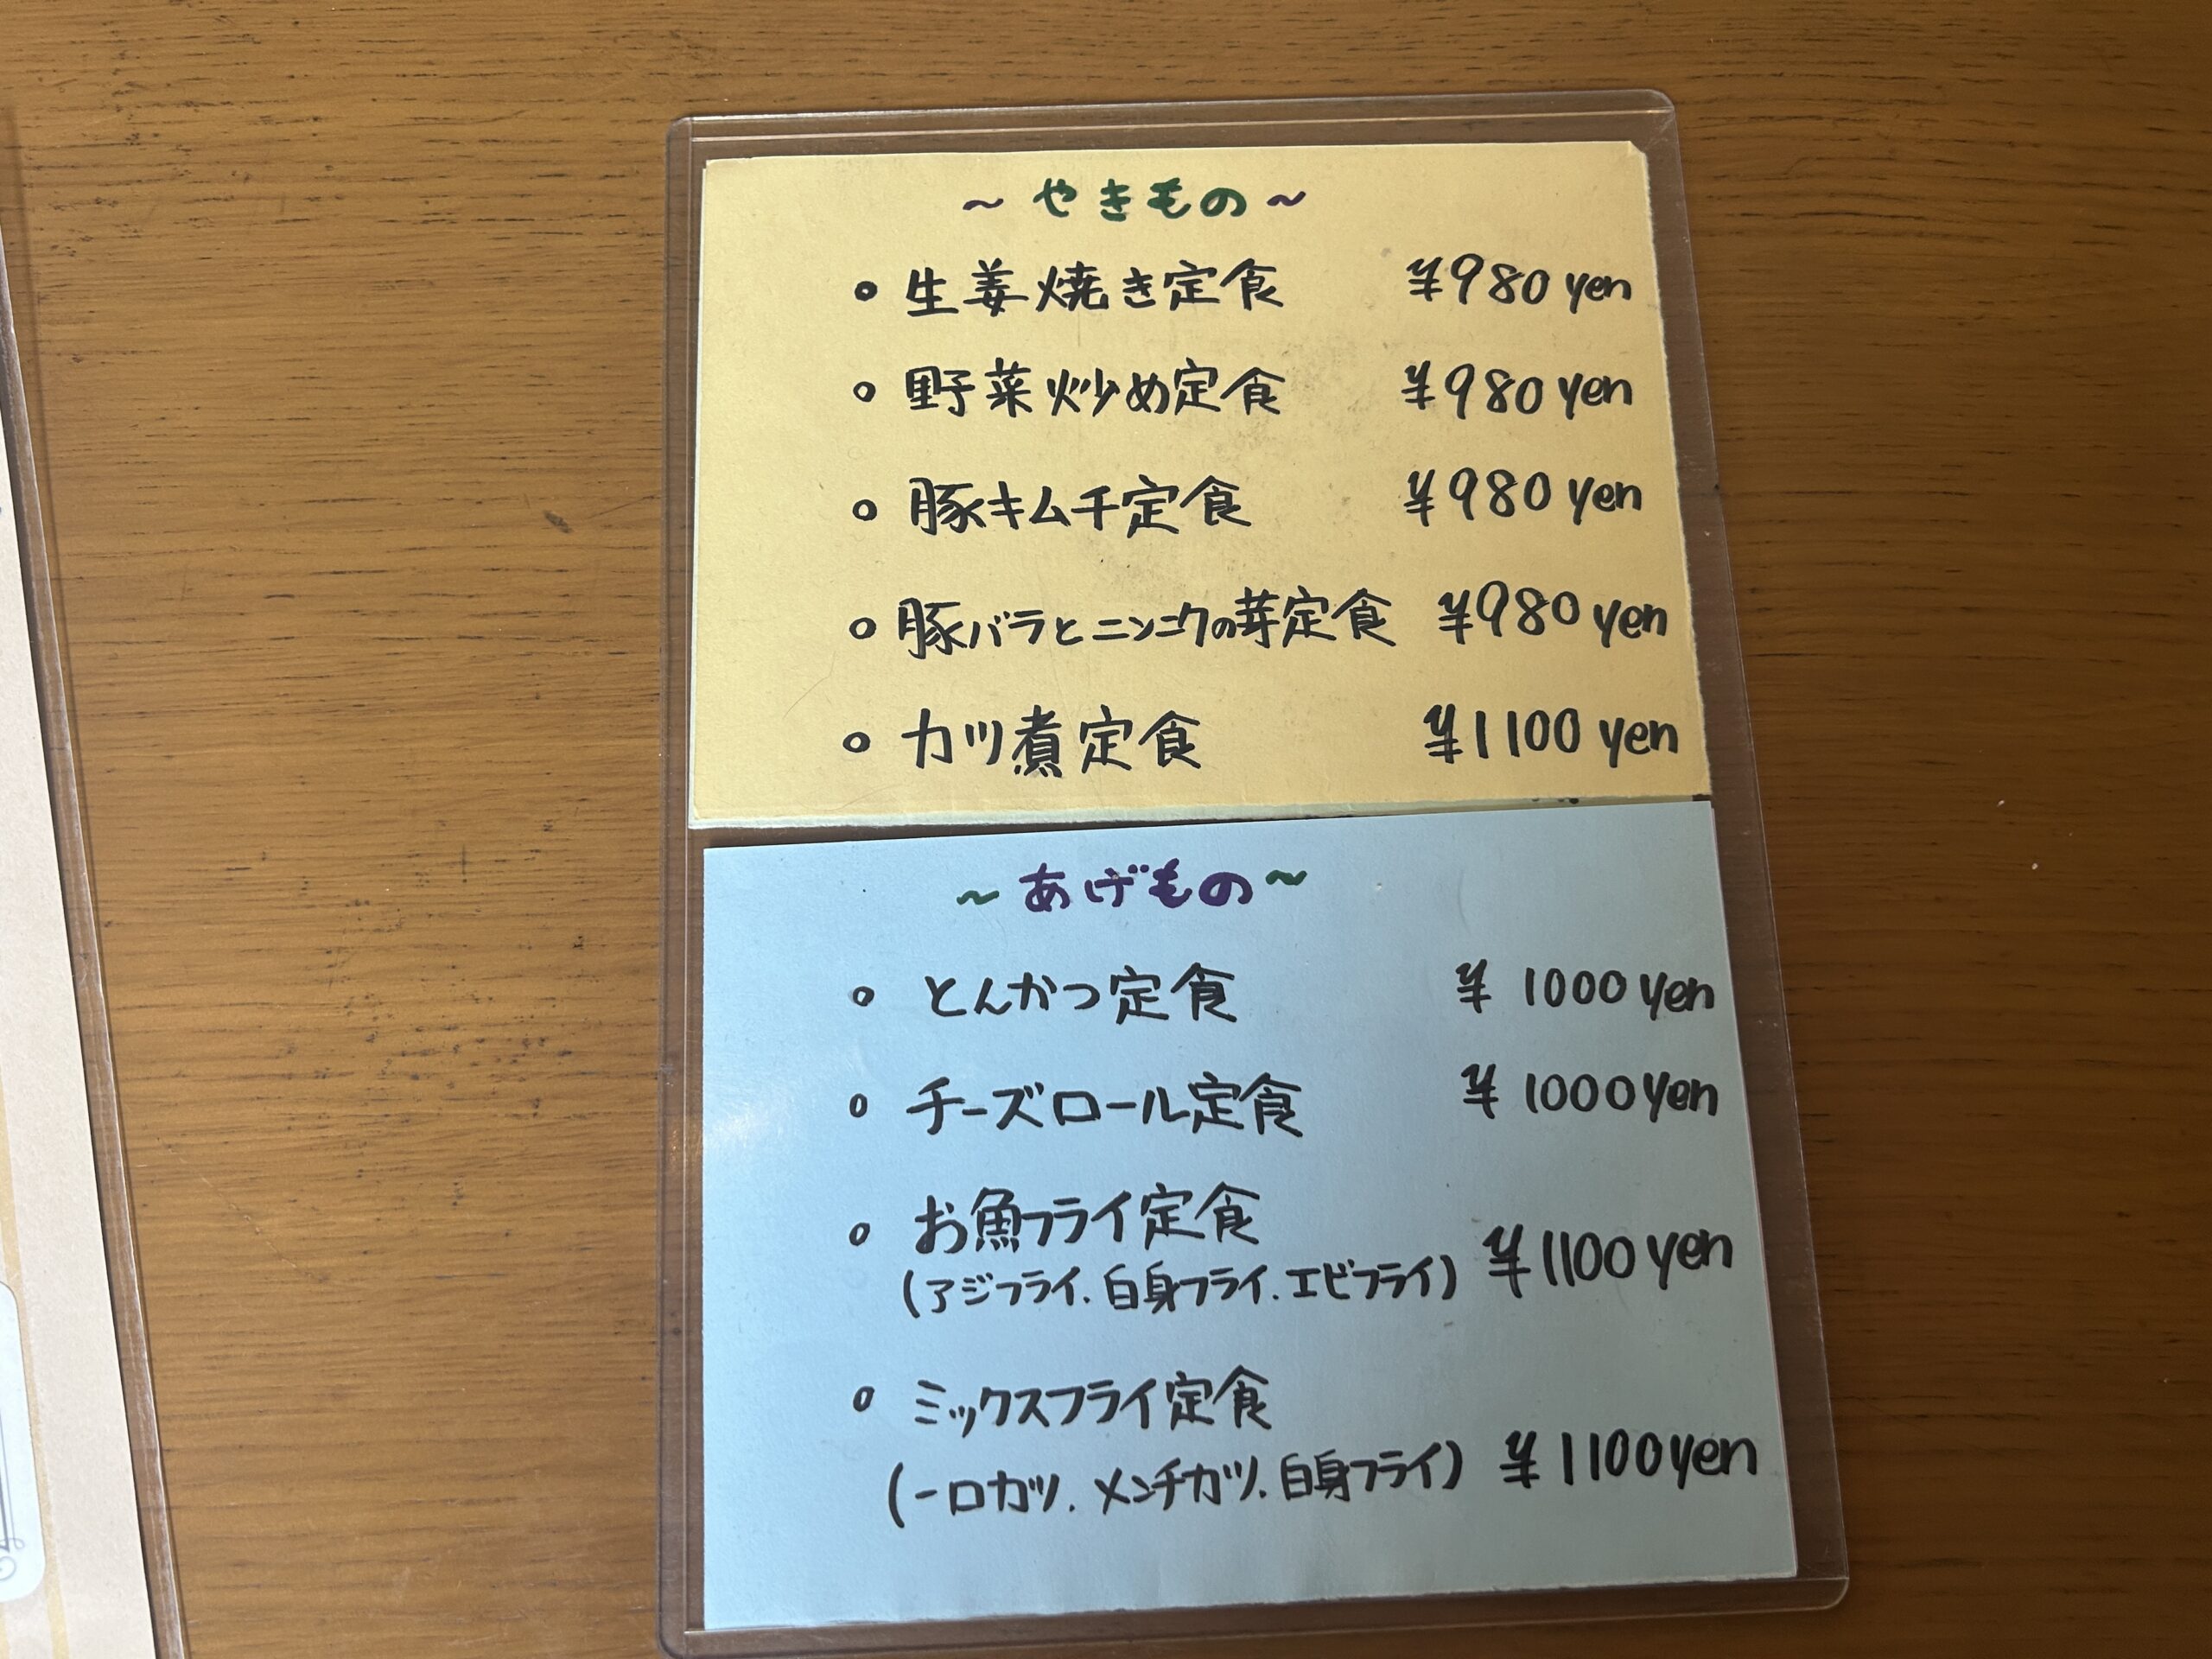 ～やきもの～
○ 生姜焼き定食 ¥980yen
○ 野菜炒め定食 ¥980yen
○ 豚キムチ定食 ¥980yen
○ 豚バラとニンニクの芽定食 ¥980yen
○ カツ煮定食 ¥1100yen
～あげもの～
○ とんかつ定食 ¥1000yen
○ チーズロール定食 ¥1000yen
○ お魚フライ定食
(アジフライ、白身フライ、エビフライ) ¥1100yen
○ ミックスフライ定食
(一口カツ、メンチカツ、白身フライ) ¥1100yen